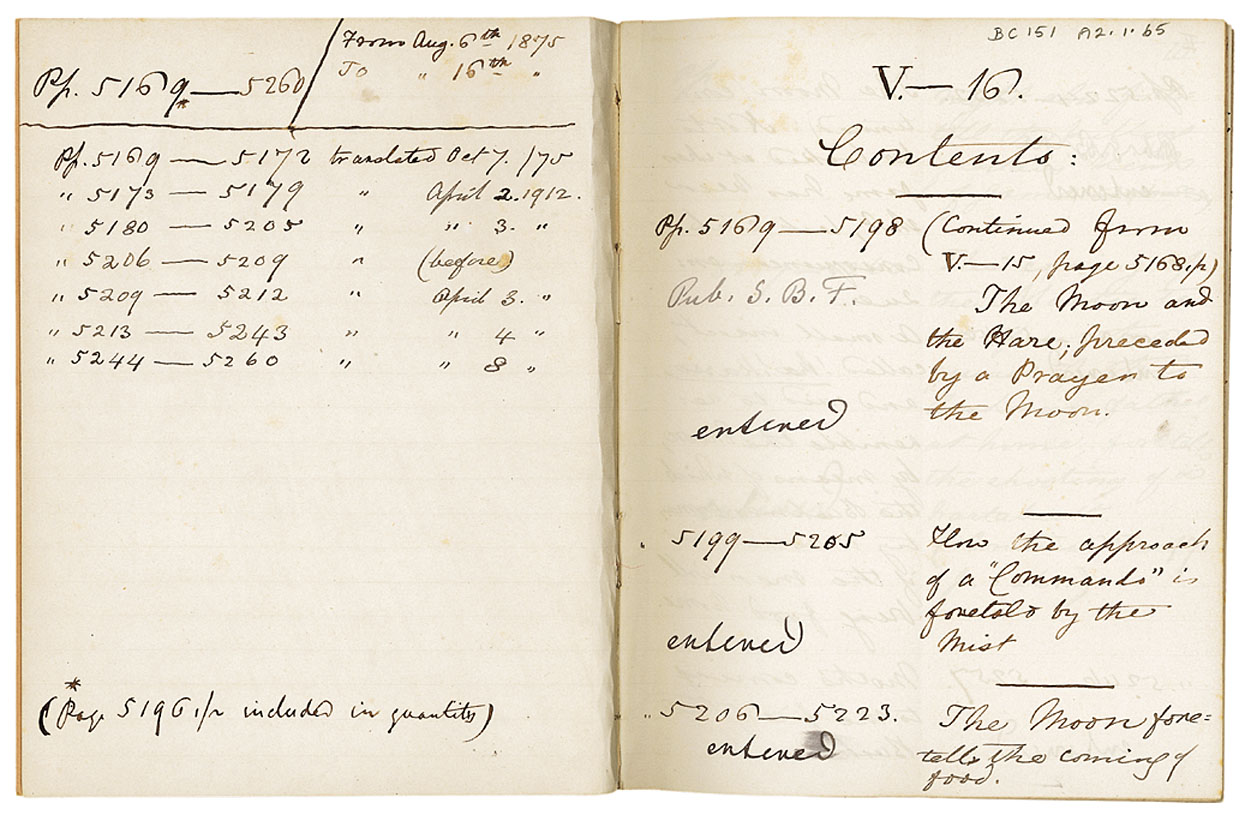 Pp. 5169 — 5260
From Aug. 6th 1875
To " 16th "
Pp. 5169 — 5172 translated Oct 7. /75
" 5173 — 5179 " April 2. 1912.
" 5180 — 5205 " " 3. "
" 5206 — 5209 " (before)
" 5209 — 5212 " April 3. "
" 5213 — 5243 " " 4 "
" 5244 — 5260 " " 8 "
*
(Page 5196 1/2 included in quantity)
BC 151 A2.1.65
V.— 16.
Contents:
Pp. 5169 — 5198 (Continued from
V.— 15, page 5168 1/2)
Pub. S. B. F. The Moon and
the Hare; preceded
by a Prayer to
the Moon.
entered
5199 — 5205 How the approach
of a "Commando" is
foretold by the
entered Mist
" 5206 — 5223. The Moon fore=
entered tells the coming of
food.